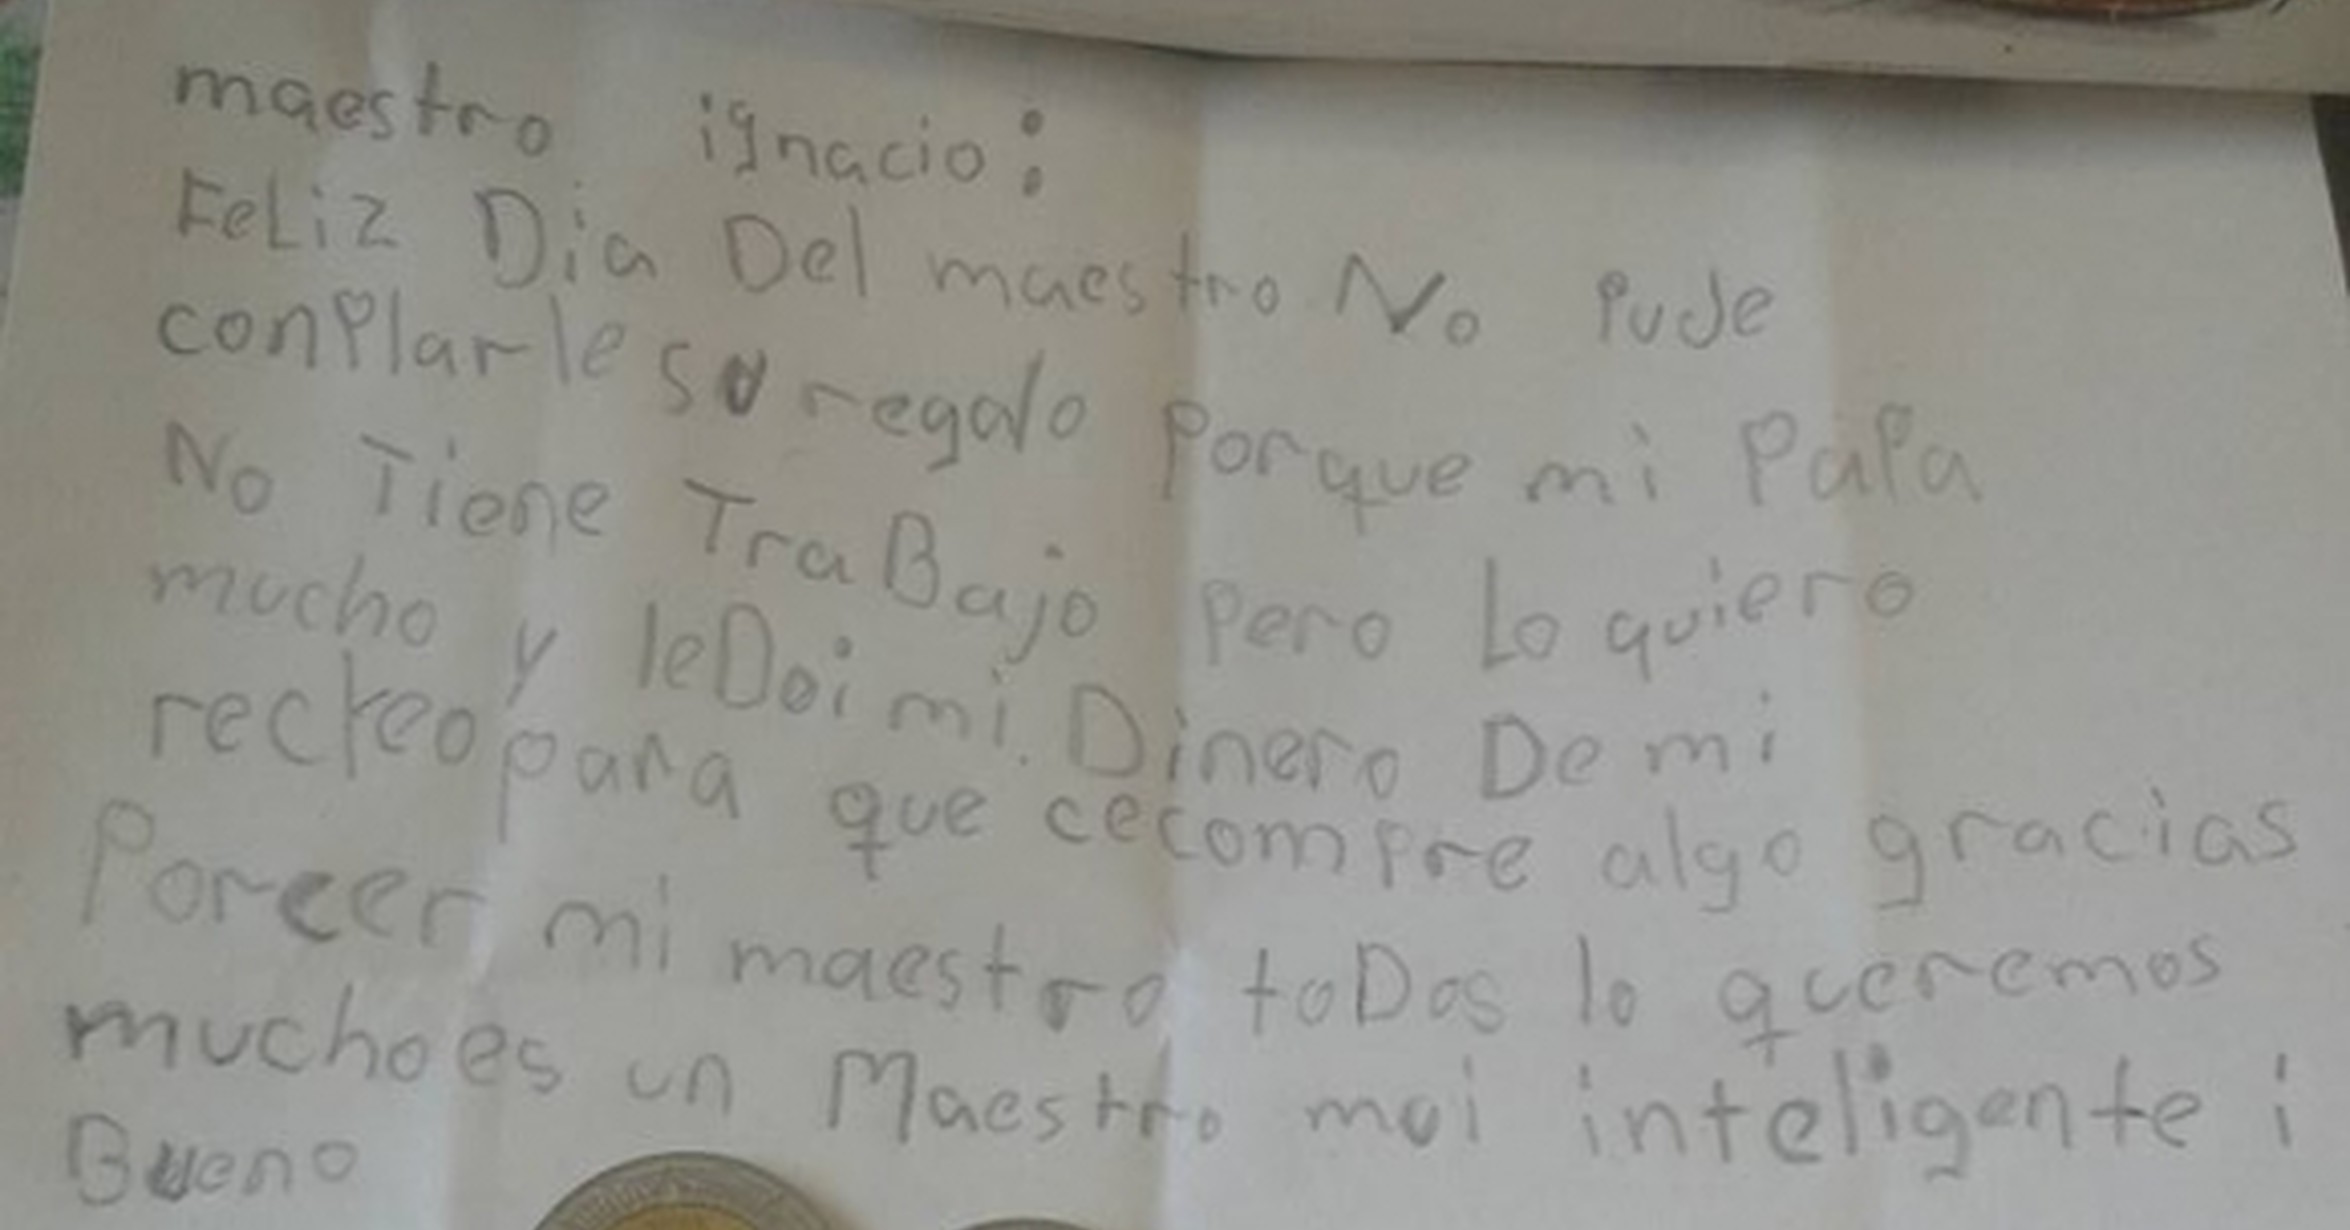 maestro ignacio:
FeLiz Dia Del maestro No Pude
conPlarle su regalo Porque mi PaPa
No Tiene TraBajo Pero Lo quiero
mucho y leDoi mi Dinero De mi
recreo para que cecompre algo gracias
Porcer mi maestro toDos lo queremos
muchoes un Maestro moi inteligente i
Bueno